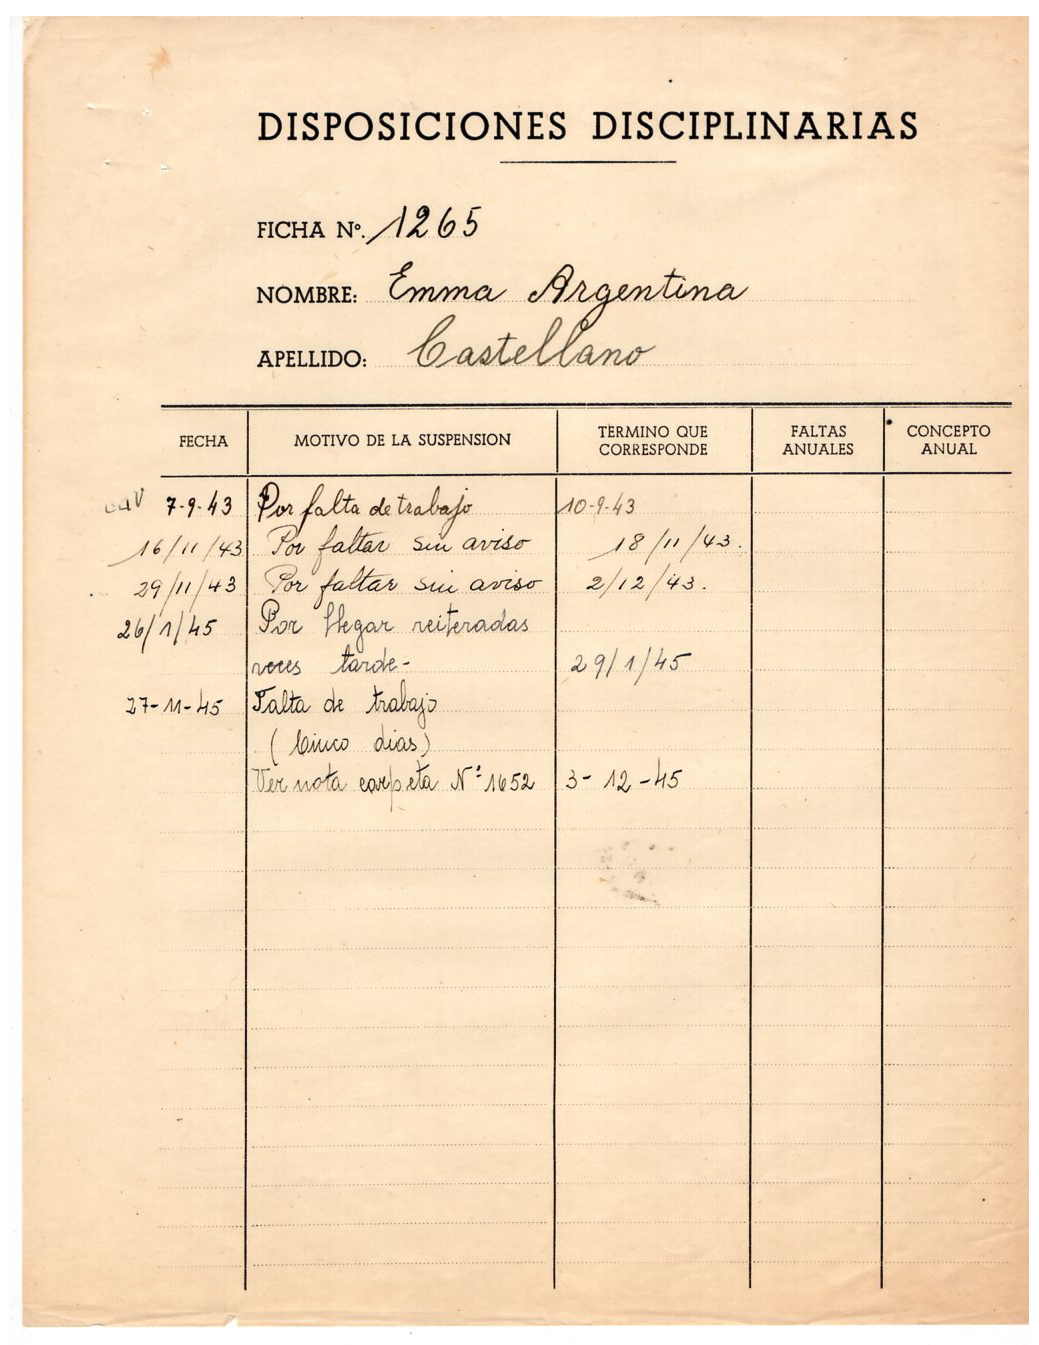 DISPOSICIONES DISCIPLINARIAS
FICHA Nº. 1265
NOMBRE: Emma Argentina
APELLIDO: Castellano
FECHA MOTIVO DE LA SUSPENSION TERMINO QUE CORRESPONDE FALTAS ANUALES CONCEPTO ANUAL
7-9-43 Por falta de trabajo 10-9-43
16/11/43 Por faltar sin aviso 18/11/43.
29/11/43 Por faltar sin aviso 2/12/43.
26/1/45 Por llegar reiteradas
veces tarde- 29/1/45
27-11-45 Falta de trabajo
(Cinco dias)
Ver nota carpeta Nº 1652 3-12-45